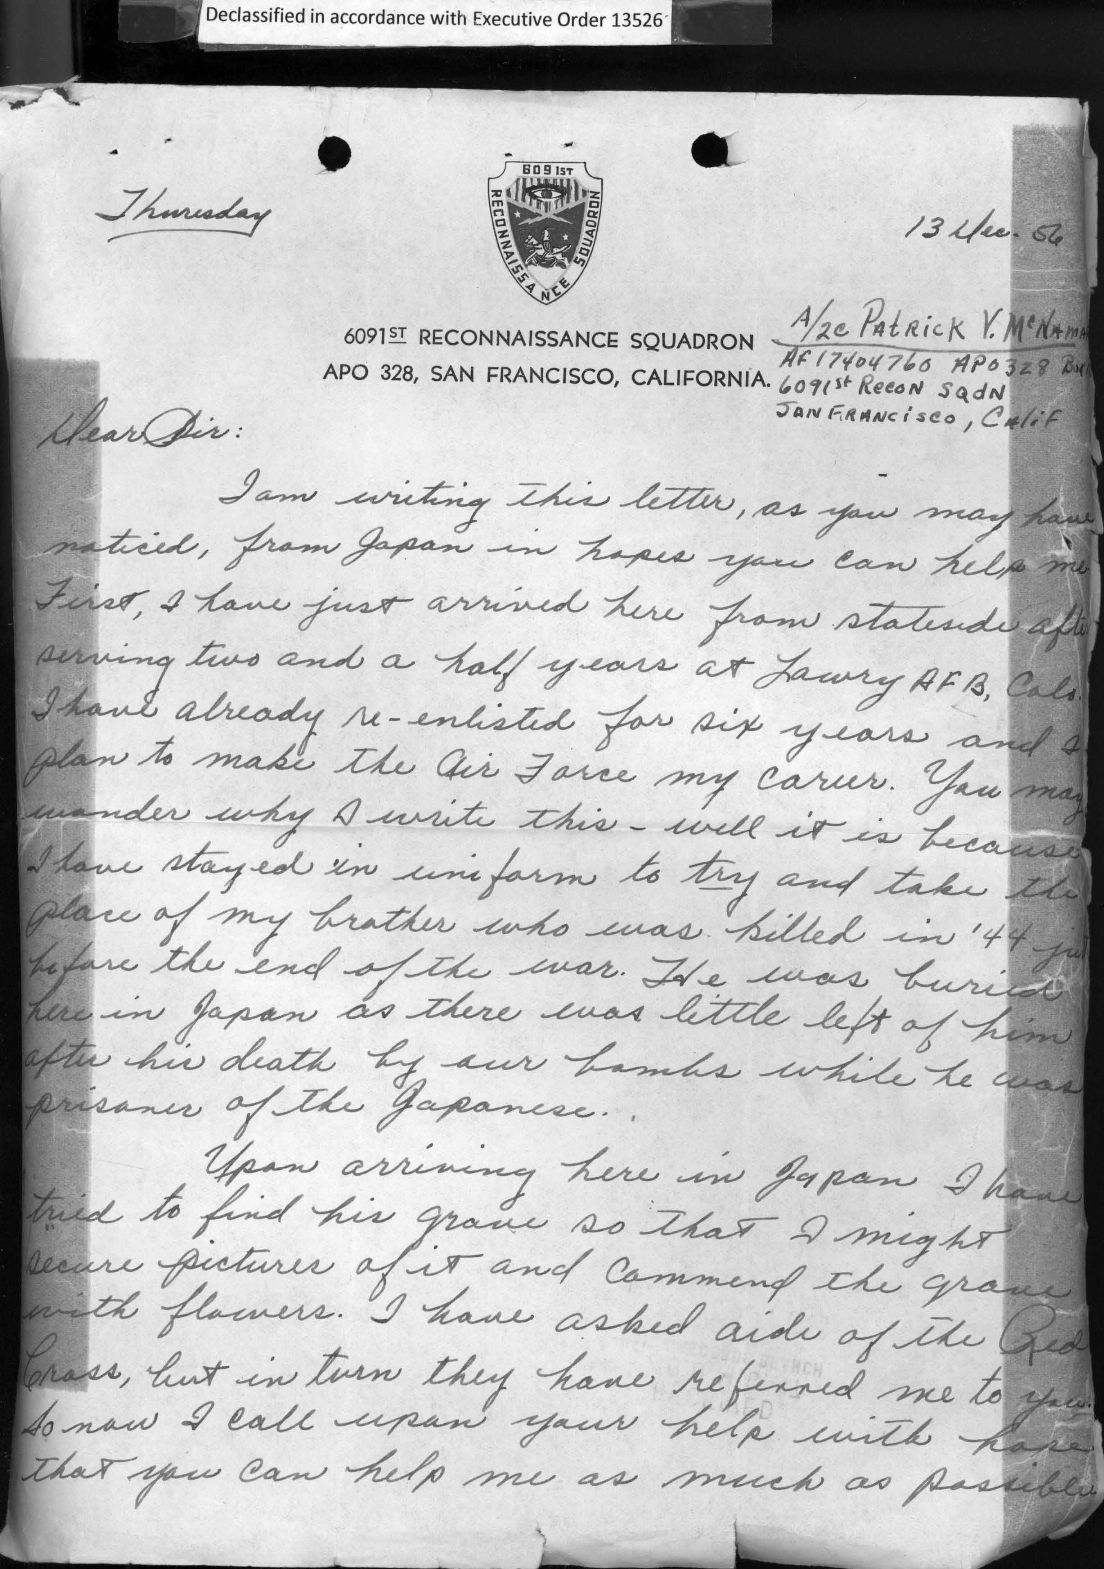 Declassified in accordance with Executive Order 13526
Thursday
13 Dec. 56
609 1ST
RECONNAISSANCE SQUADRON
6091ST RECONNAISSANCE SQUADRON
APO 328, SAN FRANCISCO, CALIFORNIA.
A/2c PATRICK V. McNAMA
AF 17404760 APO 328
6091st RECON SQDN
SAN FRANCISCO, CALIF
Dear Sir:
I am writing this letter, as you may have
noticed, from Japan in hopes you can help me
First, I have just arrived here from stateside afte
serving two and a half years at Lawry AFB, Colo.
I have already re-enlisted for six years and I
plan to make the Air Force my career. You may
wonder why I write this - well it is because
I have stayed in uniform to try and take the
place of my brother who was killed in '44 just
before the end of the war. He was buried
here in Japan as there was little left of him
after his death by our bombs while he was
prisoner of the Japanese.
Upon arriving here in Japan I have
tried to find his grave so that I might
secure pictures of it and commend the grave
with flowers. I have asked aide of the Red
Cross, but in turn they have referred me to you.
So now I call upon your help with hope
that you can help me as much as possible